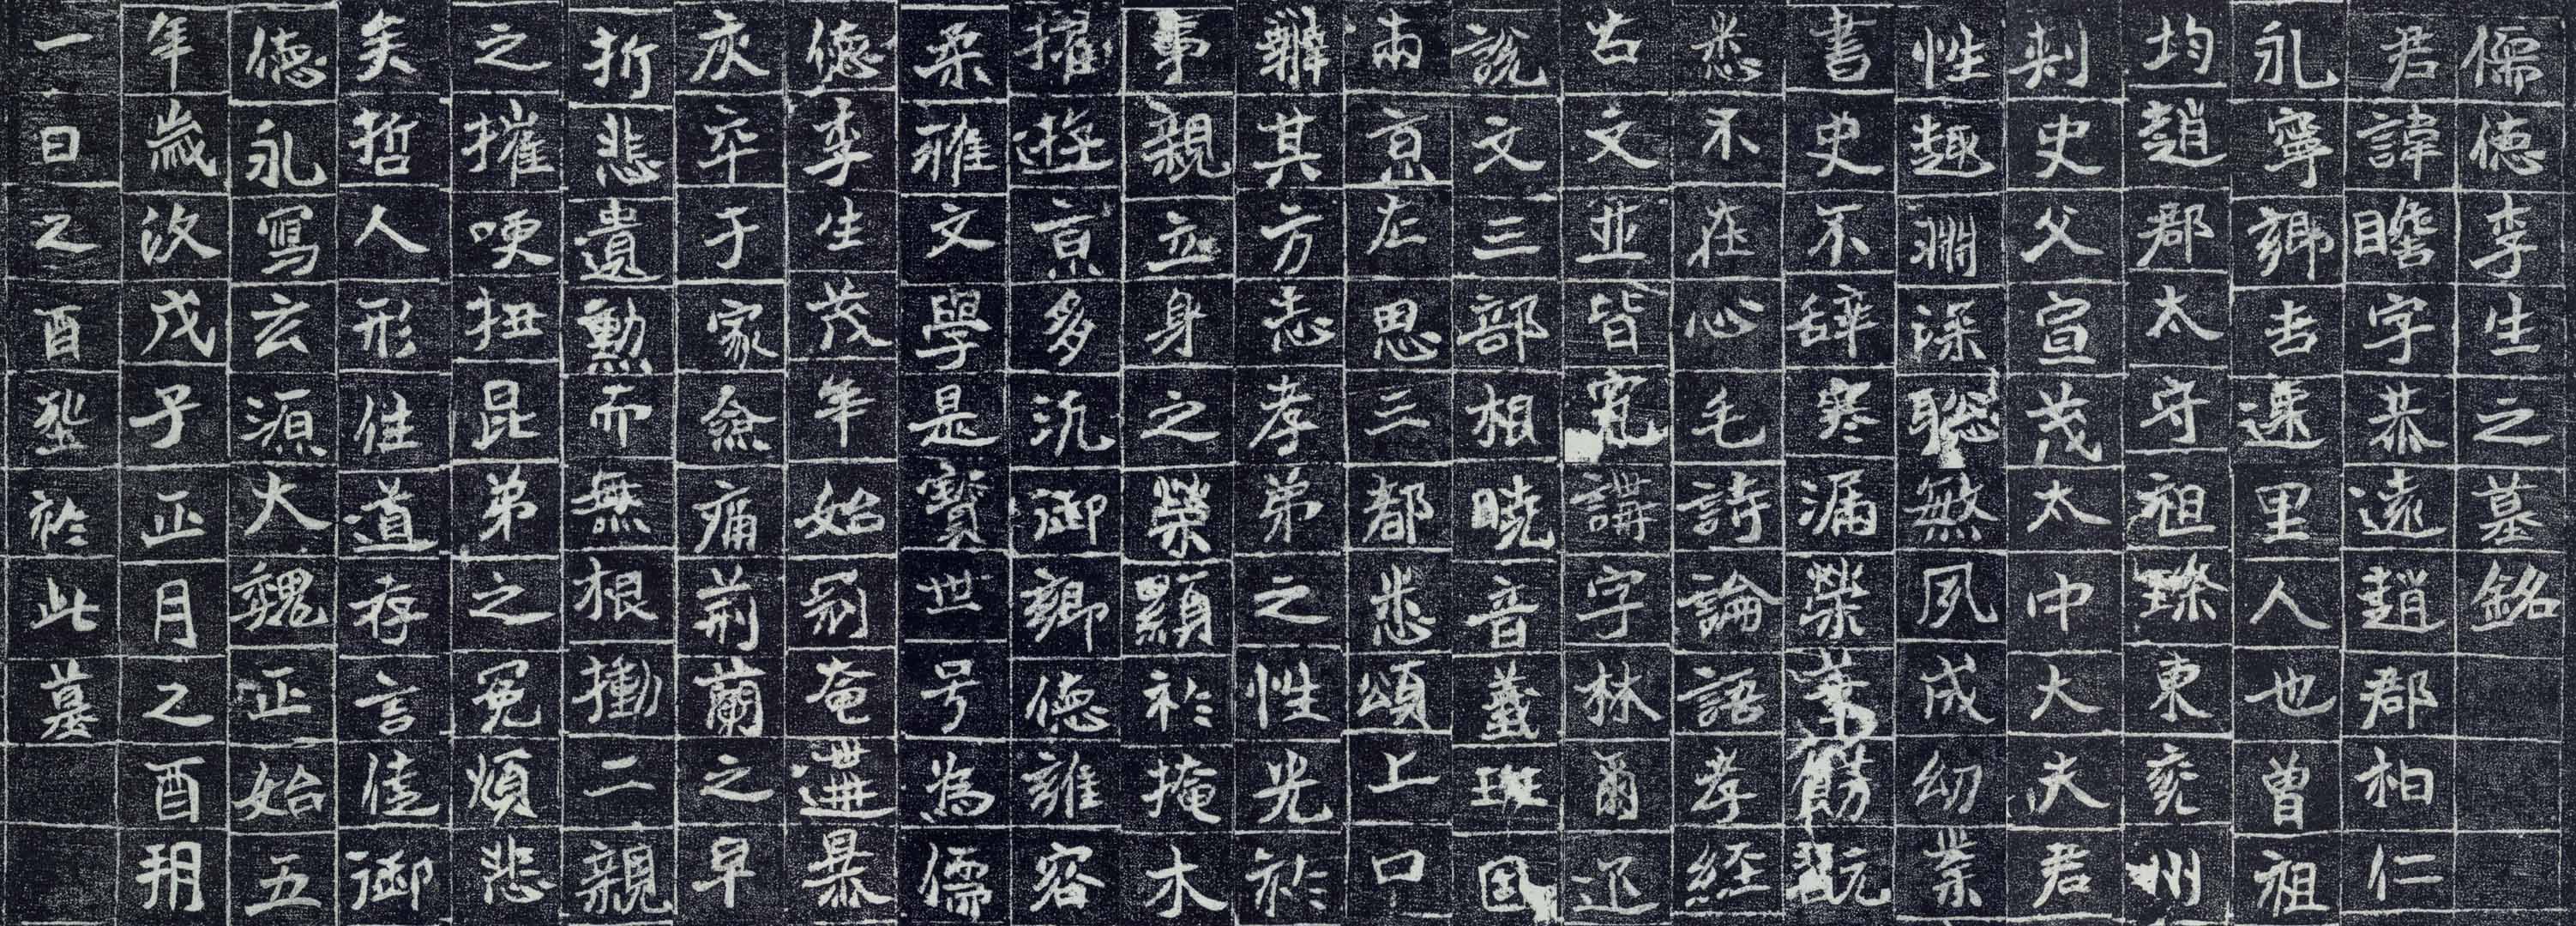 儒德李生之墓銘
君諱瞻字恭遠趙郡柏仁
永寧鄉吉遷里人也曾祖
均趙郡太守祖璨東兗州
刺史父宣茂太中大夫君
性趣淵深聰敏夙成幼業
書史不辞寒漏榮華餝翫
悉不在心毛詩論語孝經
古文並皆究講字林爾迊
說文三部相曉音義班固
兩京左思三都悉頌上口
辨其方志孝弟之性光於
事親立身之榮顯於掩木
擢遊京多汎御鄉德雍容
柔雅文學是寶世号為儒
德李生茂年始翦奄遘暴
灰卒于家僉痛荊蘭之早
折悲遺勳而無根慟二親
之摧哽扭昆弟之冤煩悲
矣哲人形往道存言佳御
德永寫玄源大魏正始五
年歲次戊子正月之酉朔
一日之酉坐於此墓